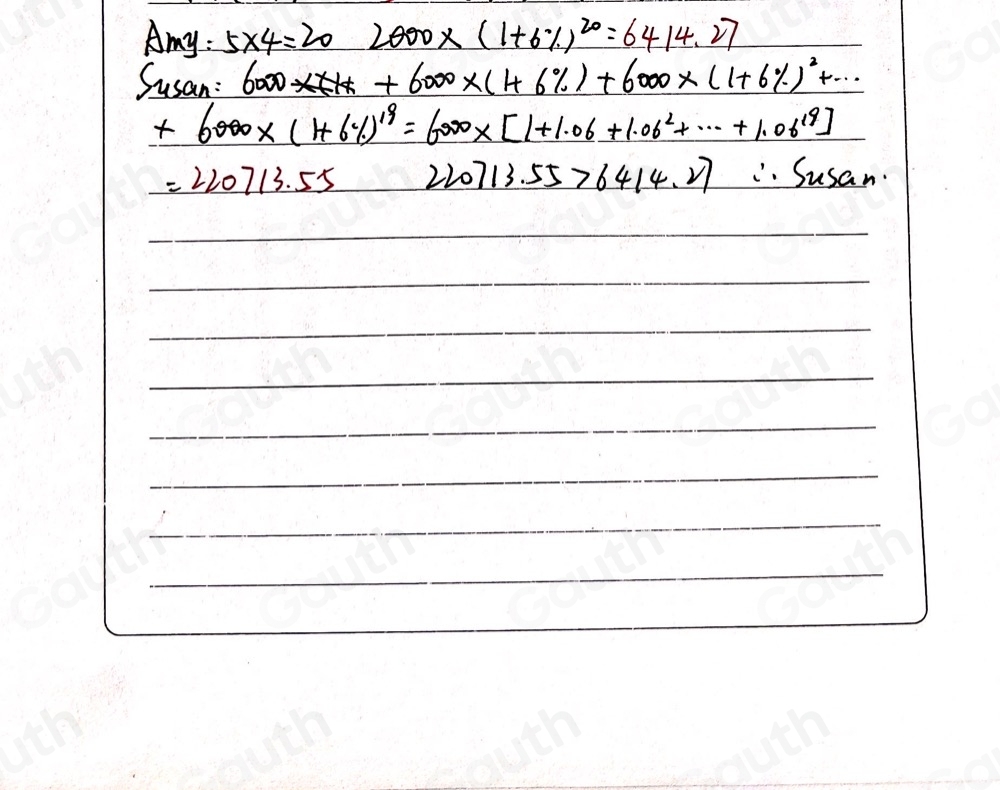 Amy: 5×4=20 2000×(1+6%)^20=6414.27
Susan: 6000 + 6000×(1+6%)+6000×(1+6%)^2+...
+ 6000×(1+6%)^19=6000×[1+1.06+1.06^2+...+1.06^19]
=220713.55 220713.55>6414.27 ∴ Susan.